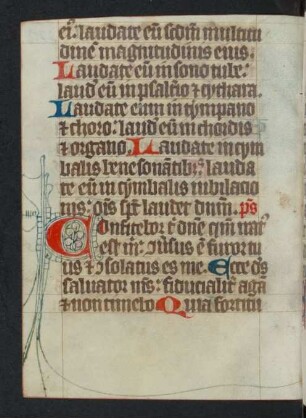 eı᷒. laudate eū scdm̄ multitu
dinē magnitudinis eius.
Laudate eū in sono tube.
laud̄ eū in psalt̄io ⁊ cythara.
Laudate eum in tympano
⁊ choro: laud̄ eū in chordis
⁊ organo. Laudate in cym
balis bene sonātib᷒: lauda
te eū in cymbalis iubilacio
nis: oīs sp̄c laudet dnm̄. ps̄
Confitebor t̄ dn̄e qm̄ irat᷒
est m̄: ɔu̓sus ē furor tu
us ⁊ ɔsolatus es me. Ecce dс̄
saluator m̄s: fiducialit̓ agā
⁊ non timebo. Quia fortitu